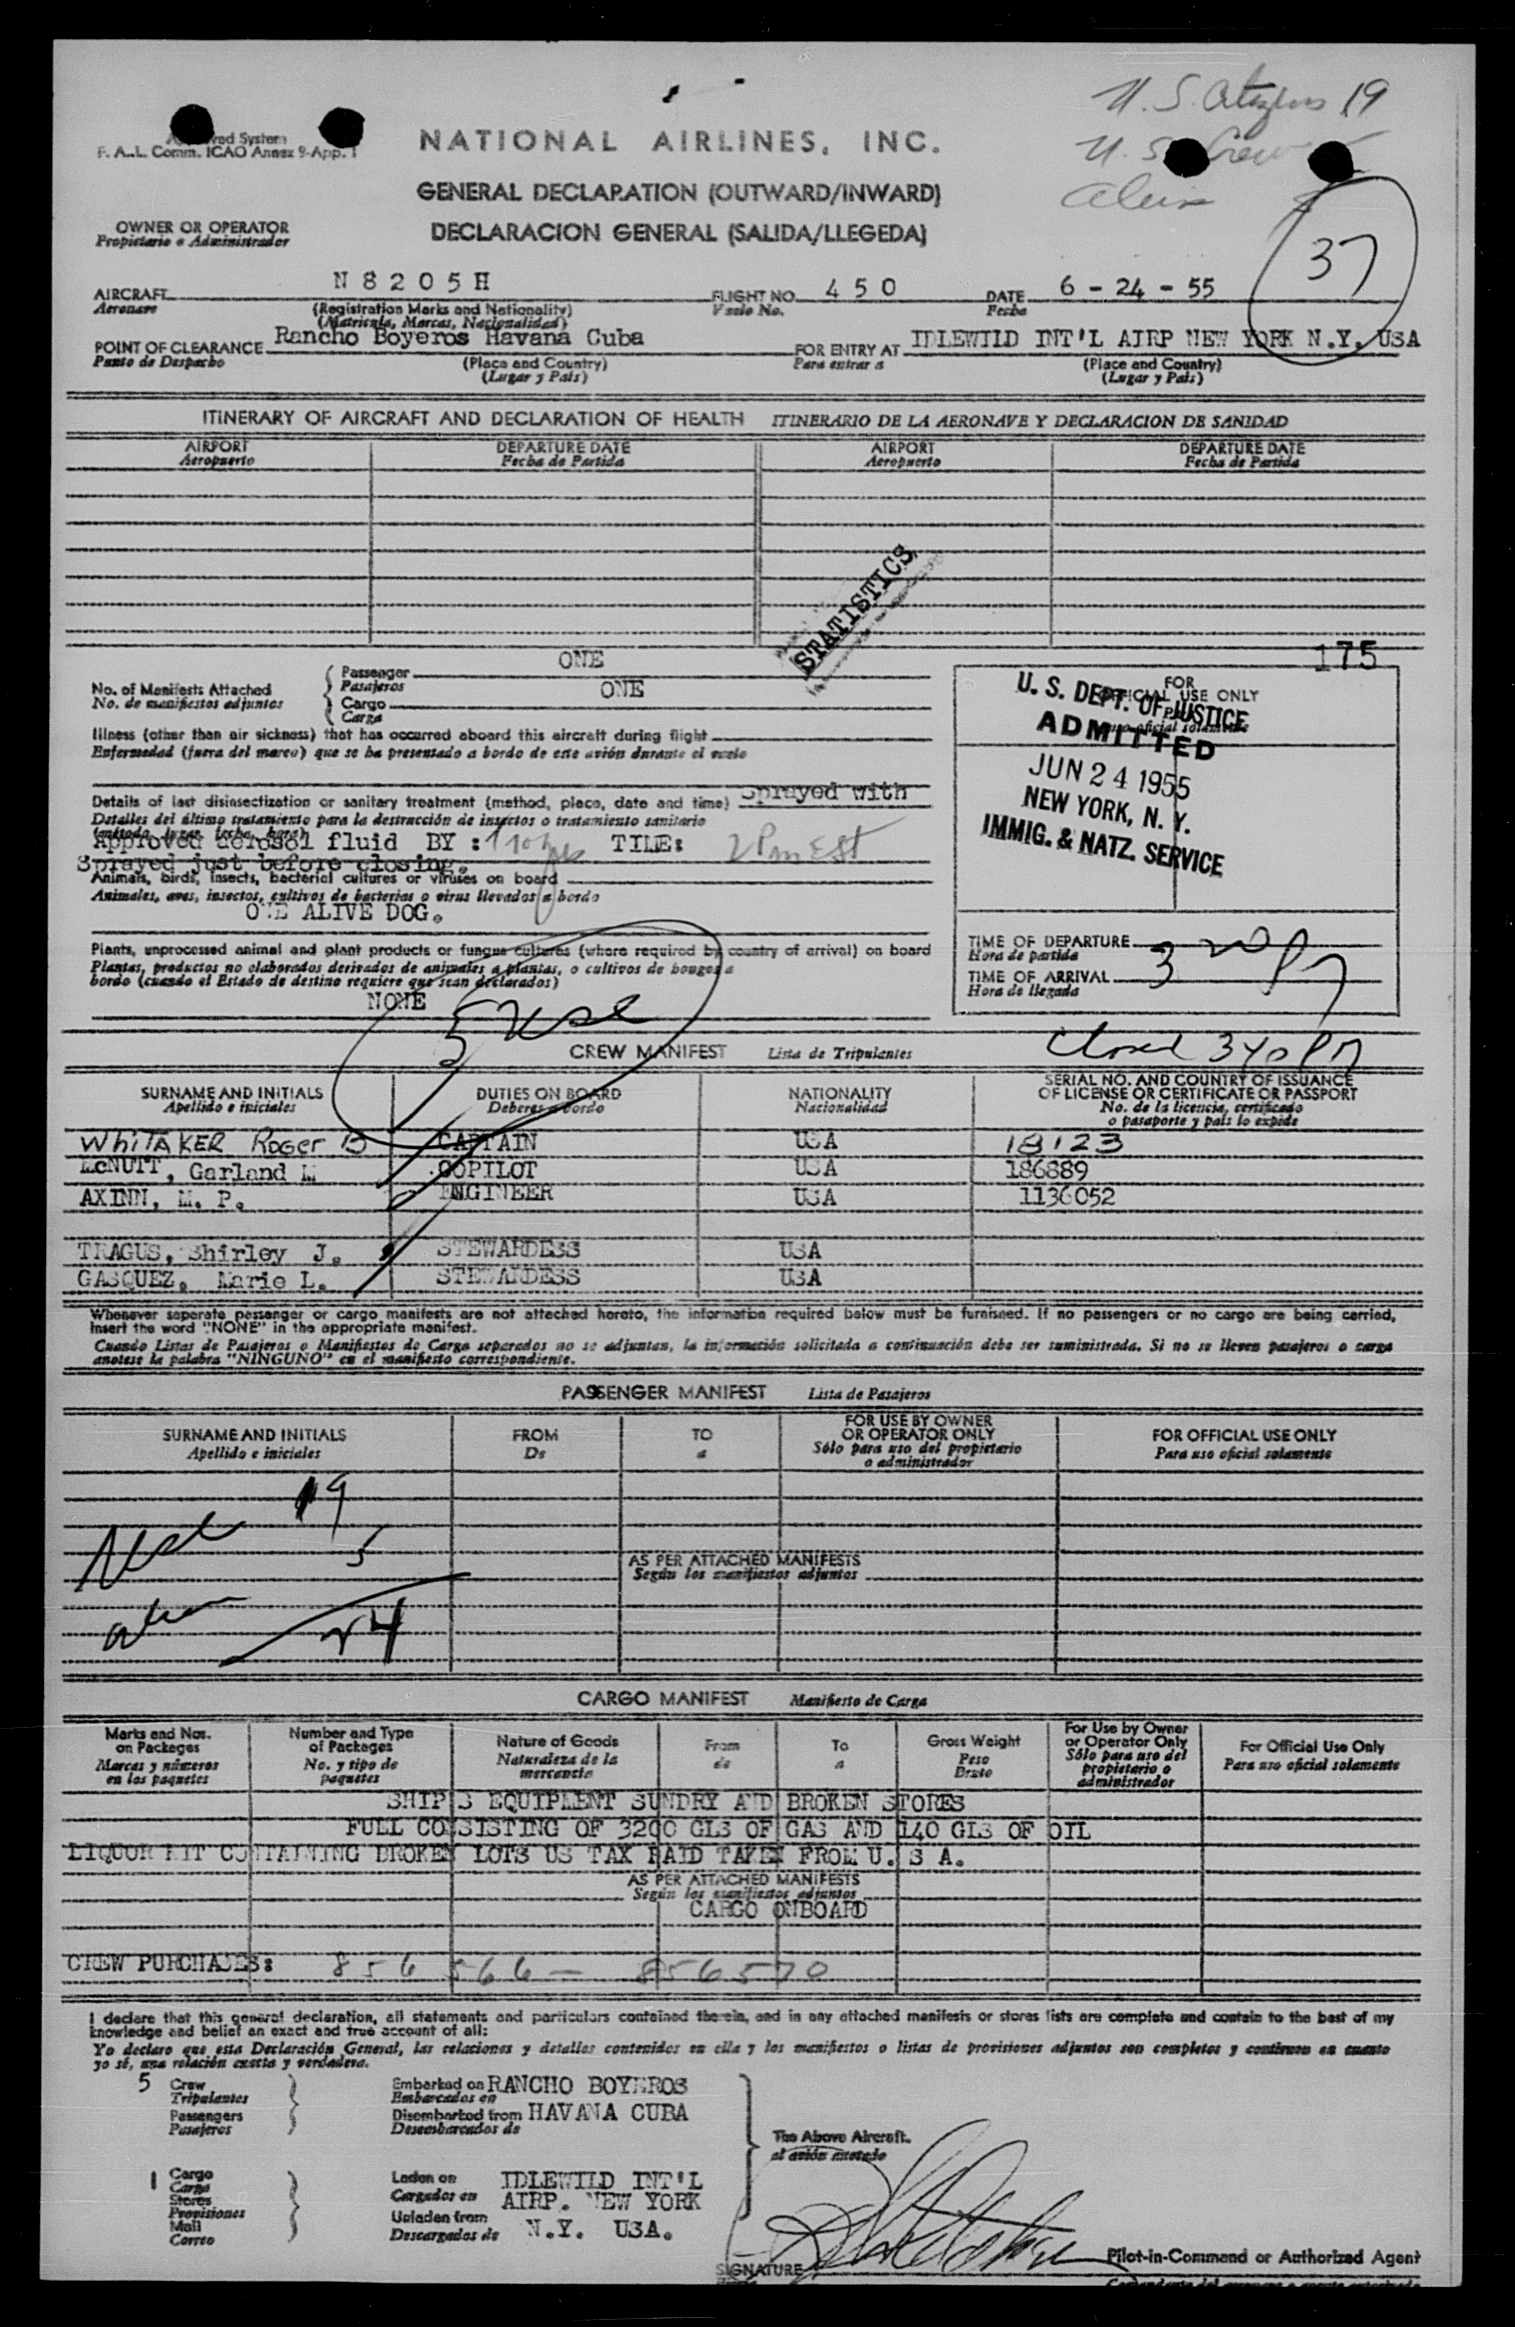 U. S. Citizens 19
U. S. Crew
Alien
Approved System
F. A. L. Comm. ICAO Annex 9-App. 1
NATIONAL AIRLINES, INC.
GENERAL DECLARATION (OUTWARD/INWARD)
DECLARACION GENERAL (SALIDA/LLEGEDA)
37
OWNER OR OPERATOR
Propietario o Administrador
AIRCRAFT N 8 2 0 5 H FLIGHT NO. 4 5 0 DATE 6 - 24 - 55
Aeronave (Registration Marks and Nationality) Vuelo No. Fecha
(Matricula, Marcas, Nacionalidad)
POINT OF CLEARANCE Rancho Boyeros Havana Cuba FOR ENTRY AT IDLEWILD INT'L AIRP NEW YORK N.Y. USA
Punto de Despacho (Place and Country) Para entrar a (Place and Country)
(Lugar y Pais) (Lugar y Pais)
ITINERARY OF AIRCRAFT AND DECLARATION OF HEALTH ITINERARIO DE LA AERONAVE Y DECLARACION DE SANIDAD
AIRPORT DEPARTURE DATE AIRPORT DEPARTURE DATE
Aeropuerto Fecha de Partida Aeropuerto Fecha de Partida
STATISTICS
175
No. of Manifests Attached Passenger ONE
No. de manifiestos adjuntos Pasajeros
Cargo ONE
Carga
Illness (other than air sickness) that has occurred aboard this aircraft during flight
Enfermedad (fuera del mareo) que se ha presentado a bordo de este avión durante el vuelo
Details of last disinsectization or sanitary treatment (method, place, date and time) Sprayed with
Detalles del último tratamiento para la destrucción de insectos o tratamiento sanitario
(método, lugar, fecha, hora)
Approved aerosol fluid BY : TIME: 2 Pm EST
Sprayed just before closing.
Animals, birds, insects, bacterial cultures or viruses on board
Animales, aves, insectos, cultivos de bacterias o virus llevados a bordo
ONE ALIVE DOG.
Plants, unprocessed animal and plant products or fungus cultures (where required by country of arrival) on board
Plantas, productos no elaborados derivados de animales o plantas, o cultivos de hongos a
bordo (cuando el Estado de destino requiere que sean declarados)
NONE
FOR
OFFICIAL USE ONLY
Para uso oficial solamente
U. S. DEPT. OF JUSTICE
ADMITTED
JUN 24 1955
NEW YORK, N. Y.
IMMIG. & NATZ. SERVICE
TIME OF DEPARTURE
Hora de partida
TIME OF ARRIVAL 3 20 Pm
Hora de llegada
5 USC
CREW MANIFEST Lista de Tripulantes
Closed 340 Pm
SURNAME AND INITIALS DUTIES ON BOARD NATIONALITY SERIAL NO. AND COUNTRY OF ISSUANCE
Apellido e iniciales Deberes a bordo Nacionalidad OF LICENSE OR CERTIFICATE OR PASSPORT
No. de la licencia, certificado
o pasaporte y pais lo expide
WHITAKER Roger B CAPTAIN USA 18123
McNUTT, Garland M COPILOT USA 186889
AXINN, M. P. ENGINEER USA 1136052
TRAGUS, Shirley J. STEWARDESS USA
GASQUEZ. Marie L. STEWARDESS USA
Whenever separate passenger or cargo manifests are not attached hereto, the information required below must be furnished. If no passengers or no cargo are being carried,
insert the word "NONE" in the appropriate manifest.
Cuando Listas de Pasajeros o Manifiestos de Carga separados no se adjuntan, la información solicitada a continuación debe ser suministrada. Si no se lleven pasajeros o carga
anotese la palabra "NINGUNO" en el manifiesto correspondiente.
PASSENGER MANIFEST Lista de Pasajeros
SURNAME AND INITIALS FROM TO FOR USE BY OWNER OR OPERATOR ONLY FOR OFFICIAL USE ONLY
Apellido e iniciales De a Sólo para uso del propietario o administrador Para uso oficial solamente
USC 19
5
Alien 24
AS PER ATTACHED MANIFESTS
Según los manifiestos adjuntos
CARGO MANIFEST Manifiesto de Carga
Marks and Nos. on Packages Number and Type of Packages Nature of Goods From To Gross Weight For Use by Owner or Operator Only For Official Use Only
Marcas y números en los paquetes No. y tipo de paquetes Naturaleza de la mercancía de a Peso Bruto Sólo para uso del propietario o administrador Para uso oficial solamente
SHIP'S EQUIPMENT SUNDRY AND BROKEN STORES
FULL CONSISTING OF 3200 GLS OF GAS AND 140 GLS OF OIL
LIQUOR KIT CONTAINING BROKEN LOTS US TAX PAID TAKEN FROM U. S A.
AS PER ATTACHED MANIFESTS
Según los manifiestos adjuntos
CARGO ONBOARD
CREW PURCHASES: 856 566 - 856570
I declare that this general declaration, all statements and particulars contained therein, and in any attached manifests or stores lists are complete and contain to the best of my
knowledge and belief an exact and true account of all:
Yo declaro que esta Declaración General, las relaciones y detalles contenidos en ella y los manifiestos o listas de provisiones adjuntos son completos y continuen en cuanto
yo sé, una relación exacta y verdadera.
5 Crew Embarked on RANCHO BOYEROS
Tripulantes Embarcados en
Passengers Disembarked from HAVANA CUBA
Pasajeros Desembarcados de
The Above Aircraft.
al avión anotado
1 Cargo Laden on IDLEWILD INT'L
Carga Cargados en AIRP. NEW YORK
Stores
Provisiones Unladen from N.Y. USA.
Mail Descargados de
Correo
SIGNATURE Pilot-in-Command or Authorized Agent